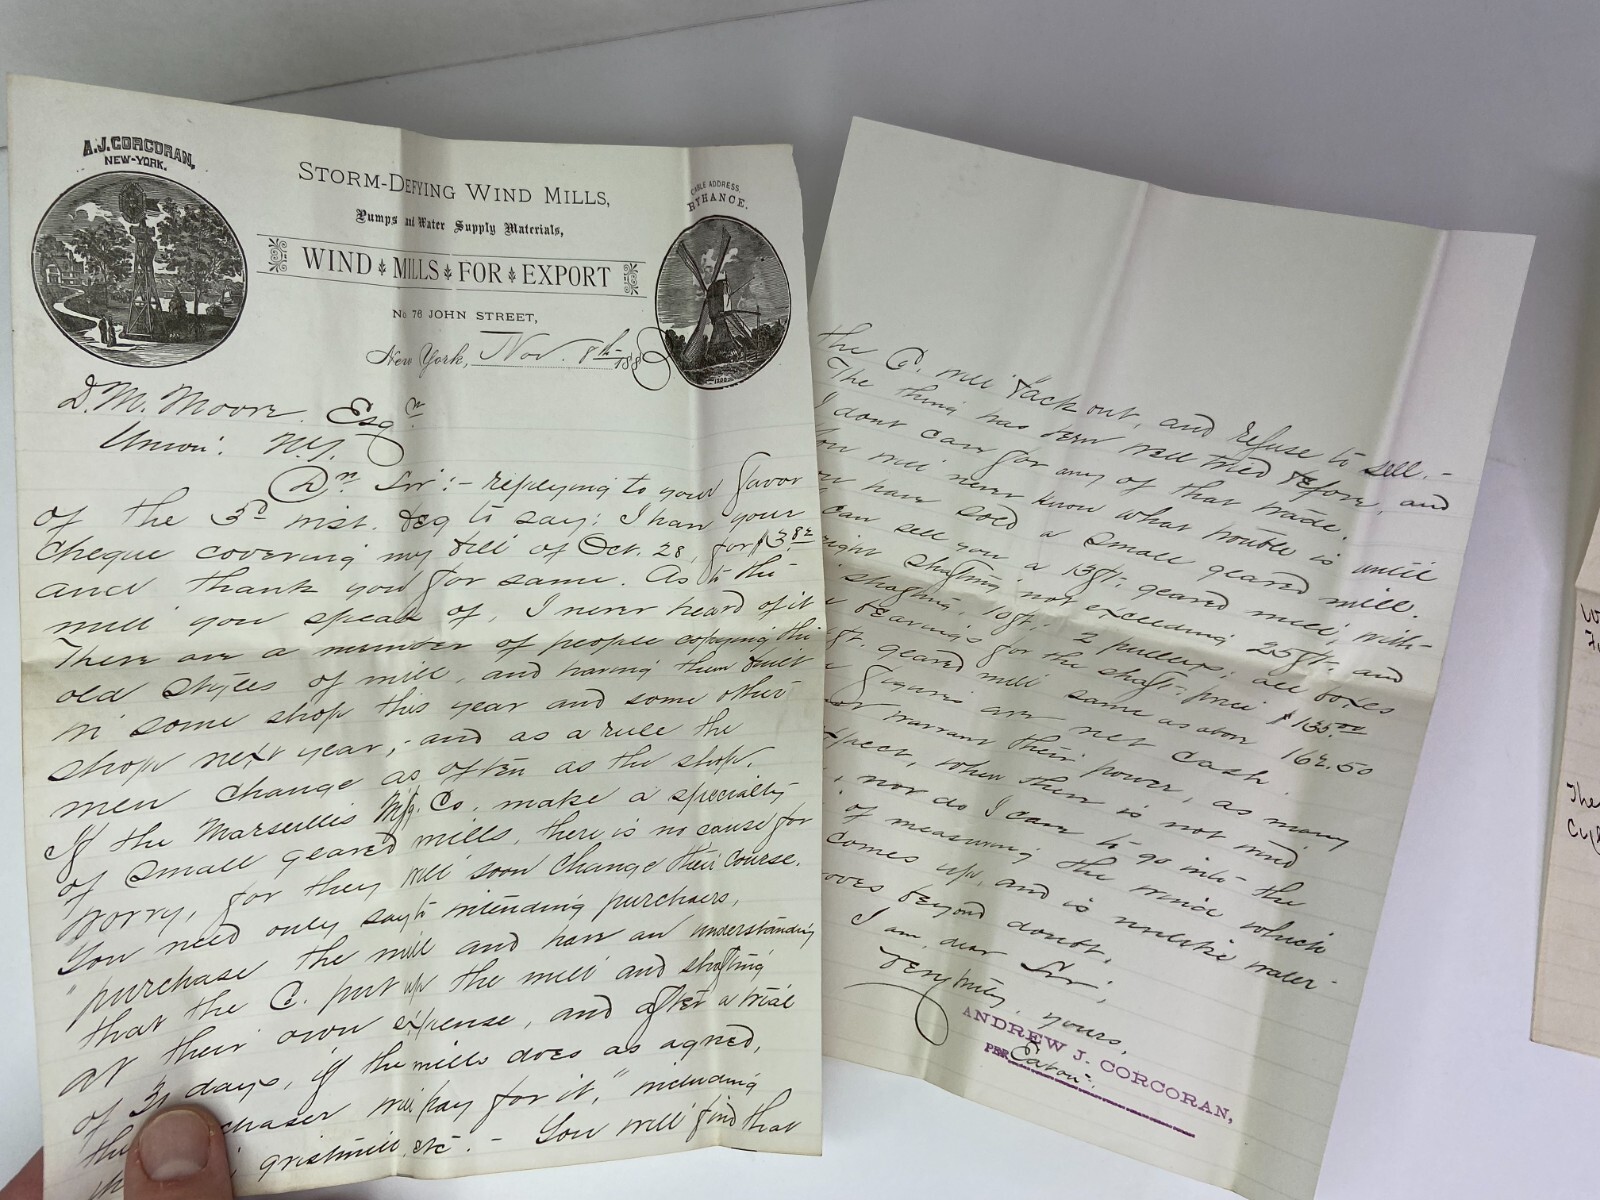 A.J. CORCORAN,
NEW-YORK.
STORM-DEFYING WIND MILLS,
Pumps and Water Supply Materials,
WIND MILLS FOR EXPORT
No 76 JOHN STREET,
CABLE ADDRESS.
New York, Nov. 8th 188
D. M. Moore Esqr
Union: N.J.
Dr Sir:- replying to your favor
of the 3d inst. beg to say: I have your
cheque covering my bill of Oct. 28, for
and thank you for same. As to the
mill you speak of, I never heard of it
There are a number of people copying the
old styles of mill, and having them built
in some shop this year and some other
shop next year,- and as a rule the
men change as often as the shop.
If the Marseilles Mfg. Co. make a specialty
of small geared mills, there is no cause for
worry, for they will soon change their course.
You need only say to intending purchasers,
"purchase the mill and have an understanding
that the C. put up the mill and shafting
at their own expense, and after a trial
of days, if the mills does as agreed,
the will pay for it," including
gristmill etc - You will find that
the Co. will back out, and refuse to sell.-
The thing has been well tried before, and
I dont care for any of that trade.
You will never know what trouble is until
you have sold a small geared mill.
can sell you a 13ft. geared mill, with-
right shafting not exceeding 25ft. and
shafting, 10ft; 2 pulleys; all boxes
bearings for the shaft- price $135.00
ft. geared mill same as above 162.50
figures are net cash.
not warrant their power, as many
expect, when there is not wind
, nor do I care to go into the
of measuring the wind which
comes up, and is unlike water-
beyond doubt.
I am, dear Sir;
Very truly yours,
ANDREW J. CORCORAN,
PER Eaton.
The